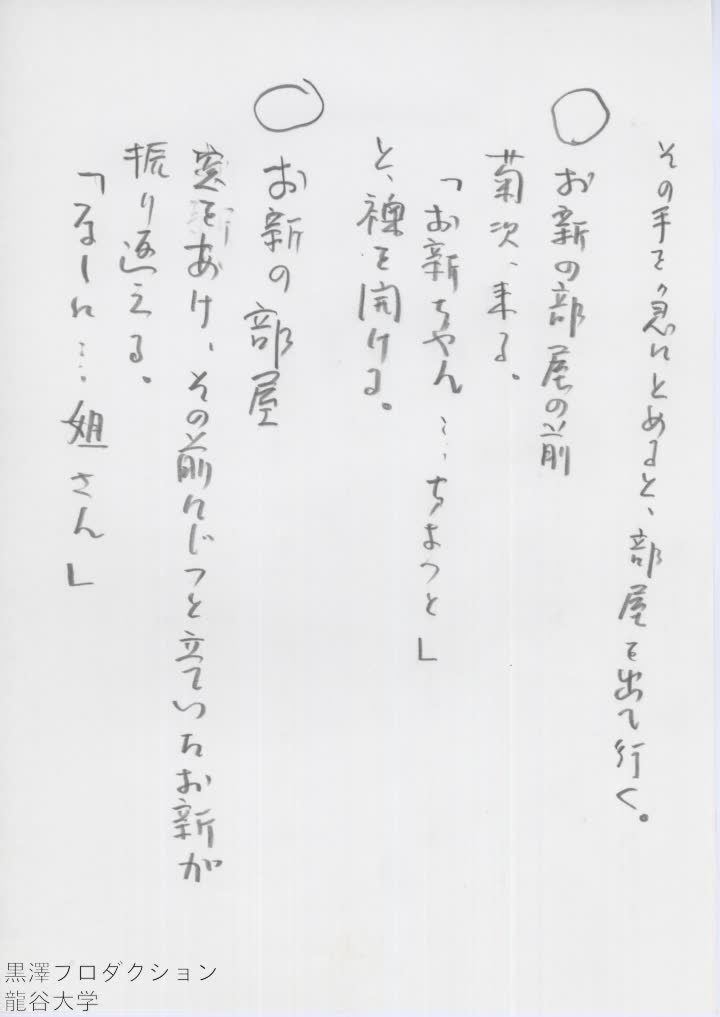 その手を急にとめると、部屋を出て行く。
○お新の部屋の前
菊次、来る。
「お新ちゃん……ちょっと」
と、襖を開ける。
○お新の部屋
窓をあけ、その前にじっと立ていたお新が
振り返える。
「なーに……姐さん」
黒澤プロダクション
龍谷大学